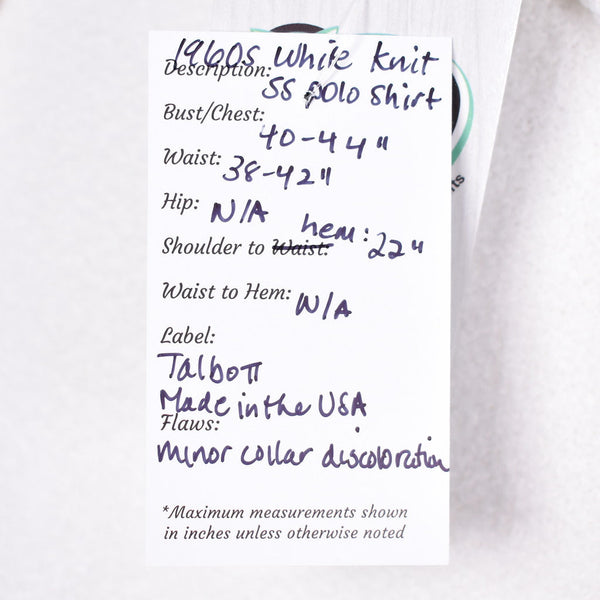 1960s White Knit
Description:
SS Polo Shirt
Bust/Chest:
40-44"
Waist: 38-42"
Hip: N/A
Shoulder to Waist: hem: 22"
Waist to Hem: N/A
Label:
Talbott
Made in the USA
Flaws:
minor collar discoloration
*Maximum measurements shown
in inches unless otherwise noted